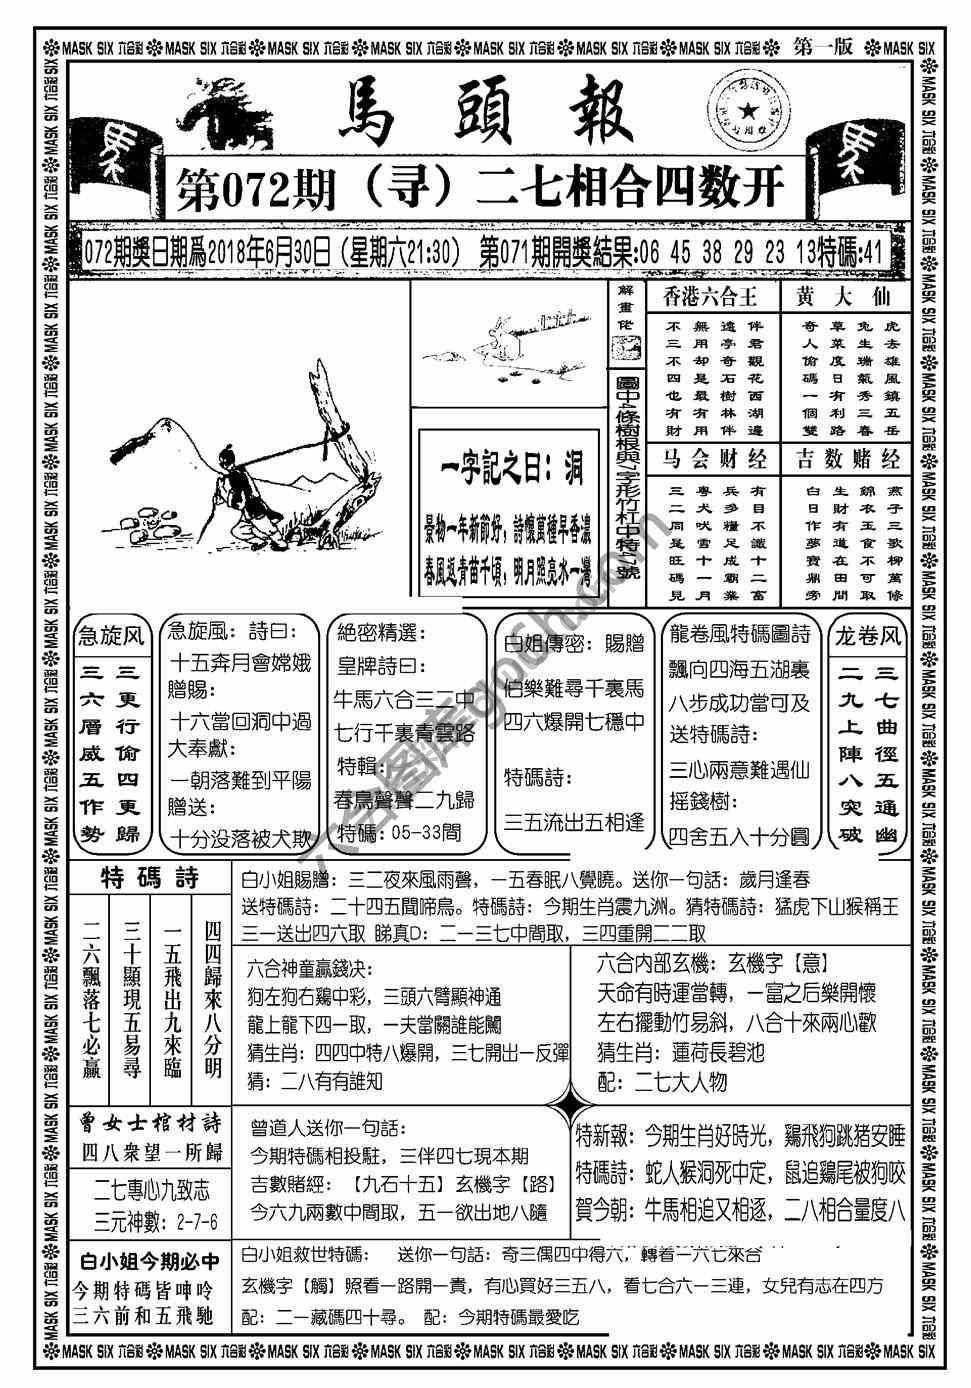 MASK SIX 六合彩 MASK SIX 六合彩 MASK SIX 六合彩 MASK SIX 六合彩 MASK SIX 六合彩 MASK SIX 六合彩 MASK SIX 六合彩 第一版 MASK SIX
馬頭報
第072期（寻）二七相合四数开
072期獎日期爲2018年6月30日（星期六21:30） 第071期開獎結果:06 45 38 29 23 13特碼:41
解畫佬
圖中4條樹根與7字形竹杜中特47號
一字記之曰：洞
景物一年新節好，詩懷萬種早香濃
春風返青苗千頃，明月照亮水一灣
香港六合王
伴君觀花西湖邊
遠亭奇石樹林伴
無用却是最有用
不三不四也有財
黄大仙
虎去雄風鎮五岳
兔生瑞氣秀三春
草菜度日有利路
奇人偷碼一個雙
马会财经
有目不識十二富
兵多糧足成霸業
粵犬吠雪十一月
三二同是旺碼見
吉数赌经
燕子三歌柳萬條
錦衣玉食不可取
生財有道在田間
白日作夢寶鼎旁
急旋风
三更行偷四更歸
三六層威五作勢
急旋風：詩曰：
十五奔月會嫦娥
贈賜：
十六當回洞中過
大奉獻：
一朝落難到平陽
贈送：
十分没落被犬欺
絕密精選：
皇牌詩曰：
牛馬六合三二中
七行千裏青雲路
特輯：
春鳥聲聲二九歸
特碼：05-33間
白姐傳密：賜贈
伯樂難尋千裏馬
四六爆開七穩中
特碼詩：
三五流出五相逢
龍卷風特碼圖詩
飄向四海五湖裏
八步成功當可及
送特碼詩：
三心兩意難遇仙
摇錢樹：
四舍五入十分圓
龙卷风
三七曲徑五通幽
二九上陣八突破
特碼詩
四四歸來八分明
一五飛出九來臨
三十顯現五易尋
二六飄落七必贏
白小姐賜贈：三二夜來風雨聲，一五春眠八覺曉。送你一句話：歲月逢春
送特碼詩：二十四五聞啼鳥。特碼詩：今期生肖震九洲。猜特碼詩：猛虎下山猴稱王
三一送出四六取 睇真D：二一三七中間取，三四重開二二取
六合神童贏錢决：
狗左狗右鷄中彩，三頭六臂顯神通
龍上龍下四一取，一夫當關誰能闖
猜生肖：四四中特八爆開，三七開出一反彈
猜：二八有有誰知
六合内部玄機：玄機字【意】
天命有時運當轉，一富之后樂開懷
左右擺動竹易斜，八合十來兩心歡
猜生肖：蓮荷長碧池
配：二七大人物
曾女士棺材詩
四八衆望一所歸
二七專心九致志
三元神數：2-7-6
曾道人送你一句話：
今期特碼相投駐，三伴四七現本期
吉數賭經：【九石十五】玄機字【路】
今六九兩數中間取，五一欲出地八隨
特新報：今期生肖好時光，鷄飛狗跳猪安睡
特碼詩：蛇人猴洞死中定，鼠追鷄尾被狗咬
賀今朝：牛馬相追又相逐，二八相合量度八
白小姐今期必中
今期特碼皆呻吟
三六前和五飛馳
白小姐救世特碼： 送你一句話：奇三偶四中得六，轉着一六七來合
玄機字【觸】照看一路開一責，有心買好三五八，看七合六一三連，女兒有志在四方
配：二一藏碼四十尋。 配：今期特碼最愛吃
MASK SIX 六合彩 MASK SIX 六合彩 MASK SIX 六合彩 MASK SIX 六合彩 MASK SIX 六合彩 MASK SIX 六合彩 MASK SIX 六合彩 MASK SIX 六合彩 MASK SIX
六合图库gocsh.com